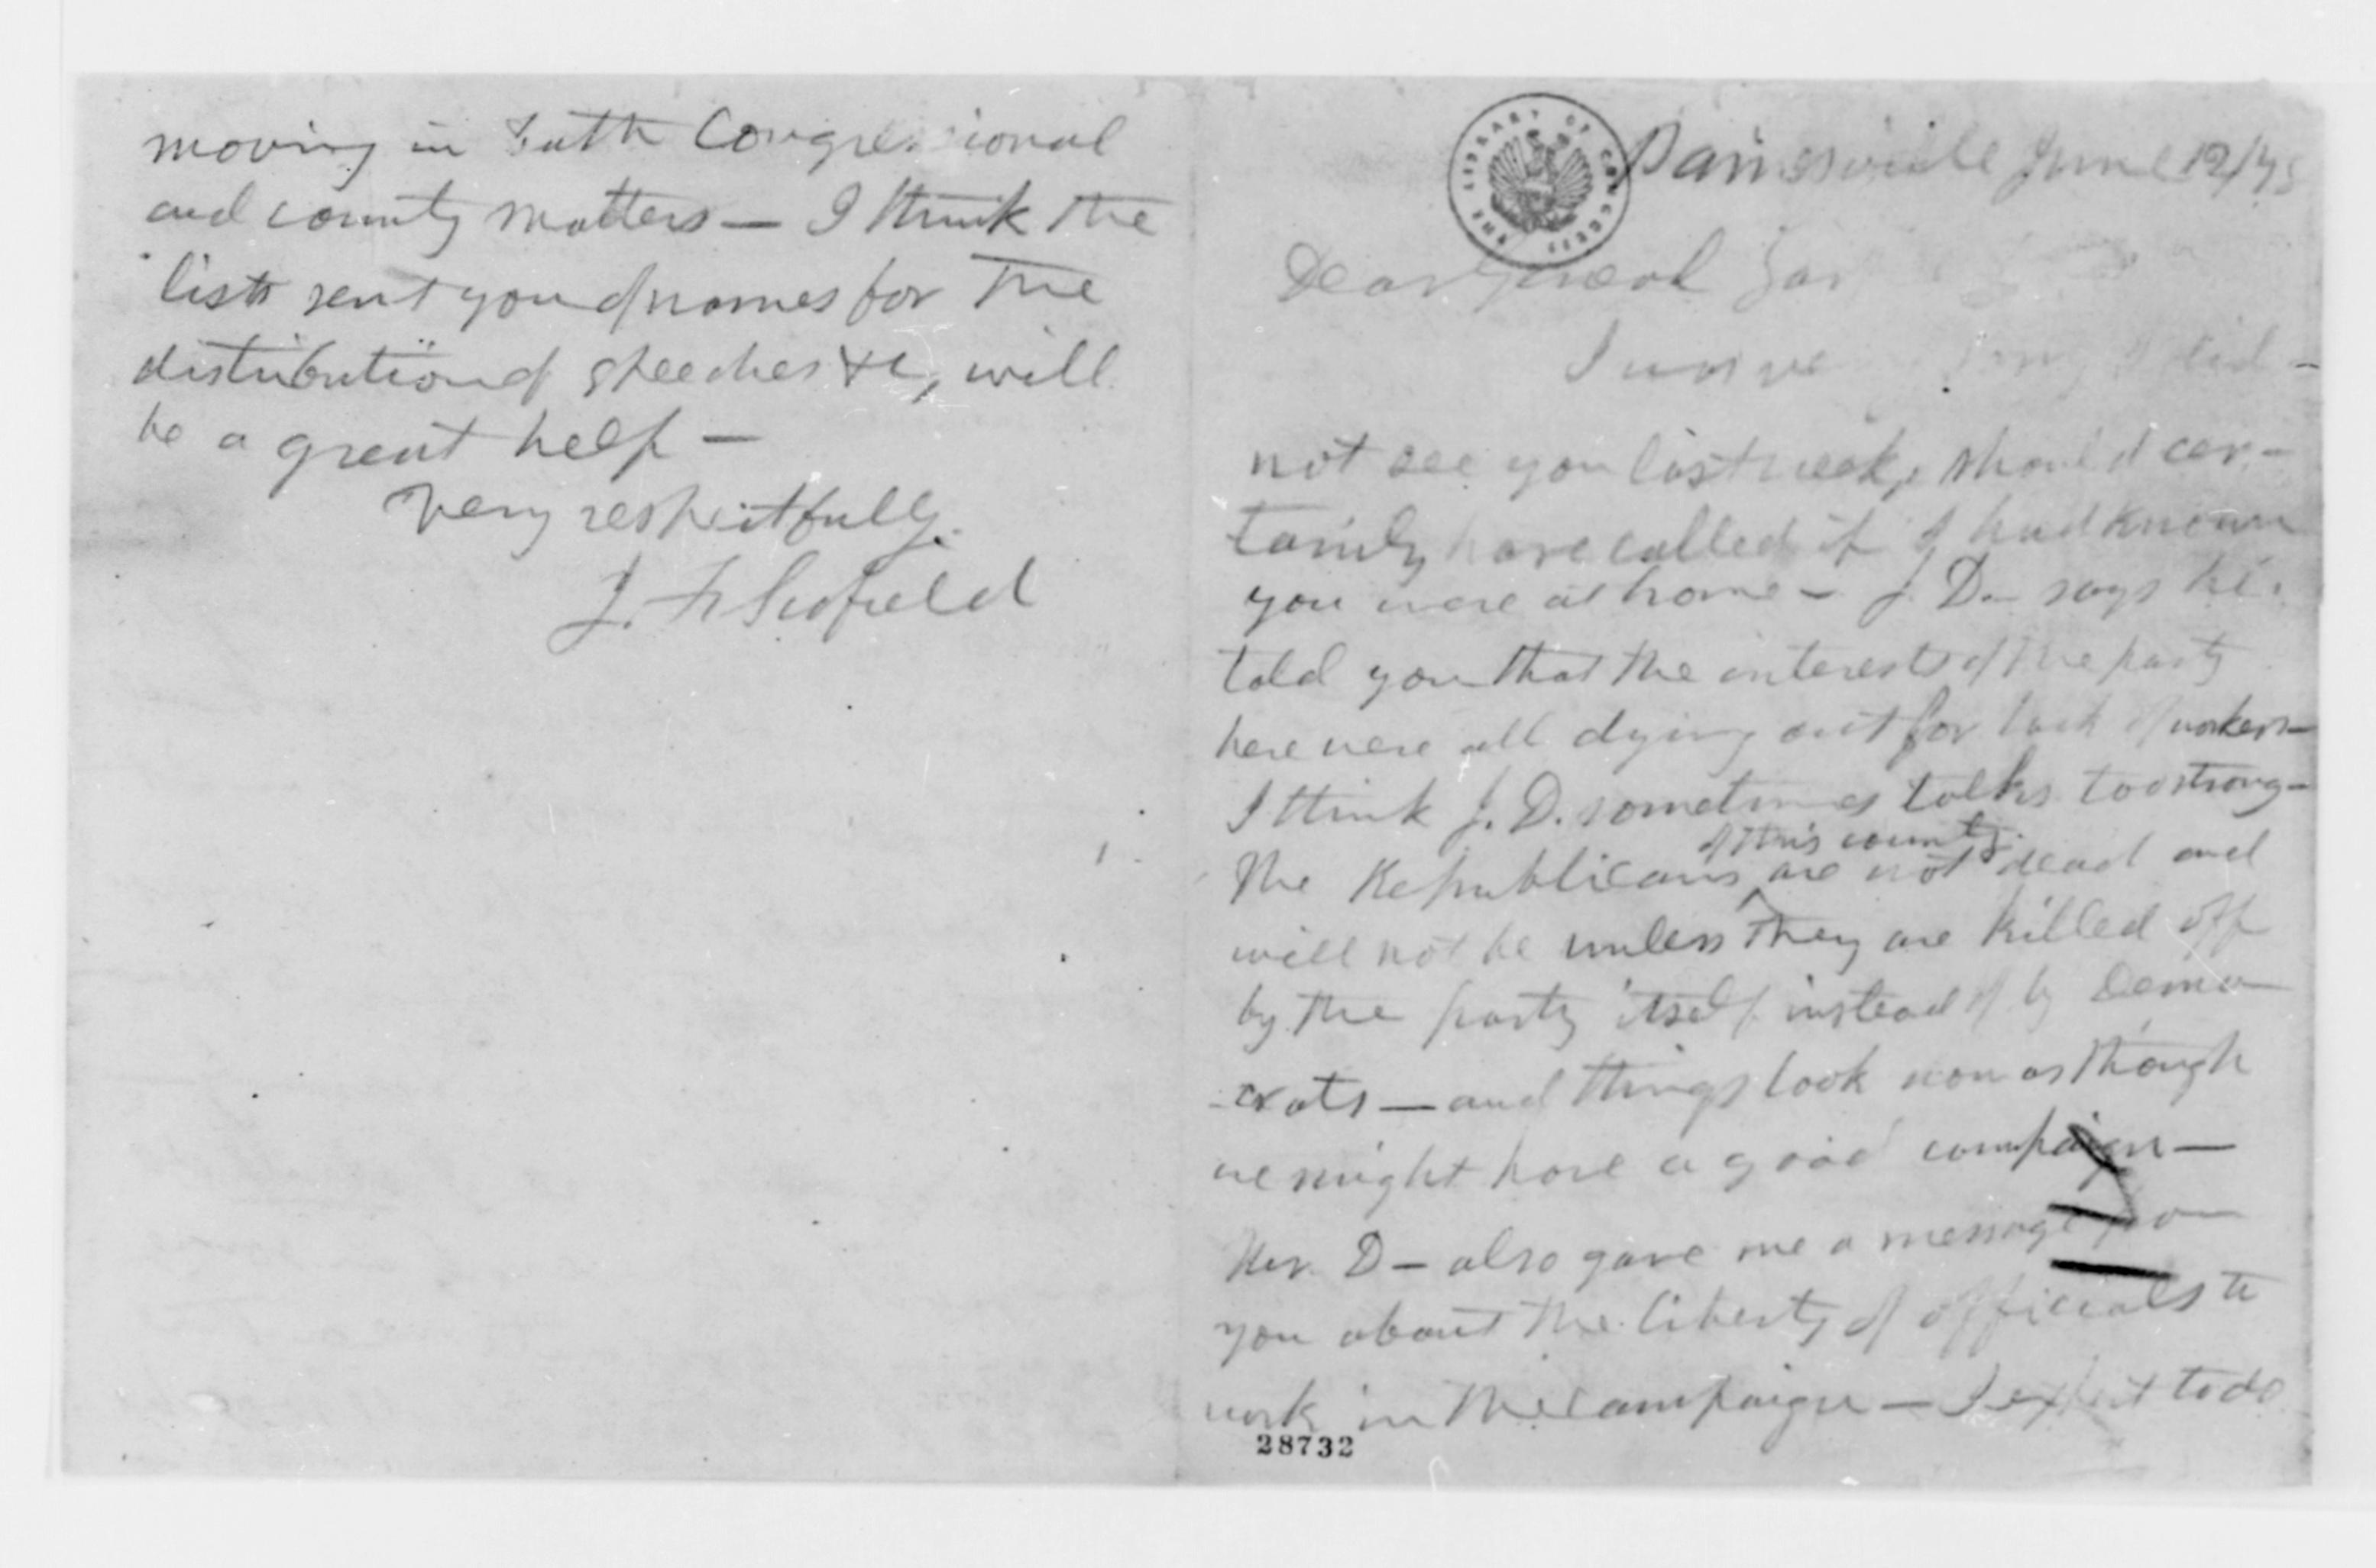 Painesville June 12/78
Dear General Gar
I was ve did -
not see you last week, should cer-
tainly have called if I had known
you were at home - J. D. says he
told you that the interests of the party
here were all dying out for lack of workers -
I think J. D. sometimes talks too strong -
of this county
The Republicans are not dead and
will not be unless they are killed off
by the party itself instead of by Demo
-crats - and things look now as though
we might have a good campaign -
D - also gave me a message from
you about the liberty of officials to
work in the campaign - I expect to do
28732
moving in both Congressional
and county matters - I think the
lists sent you of names for the
distribution of speeches &c, will
be a great help -
Very respectfully
J. F. Scofield
THE LIBRARY OF CONGRESS